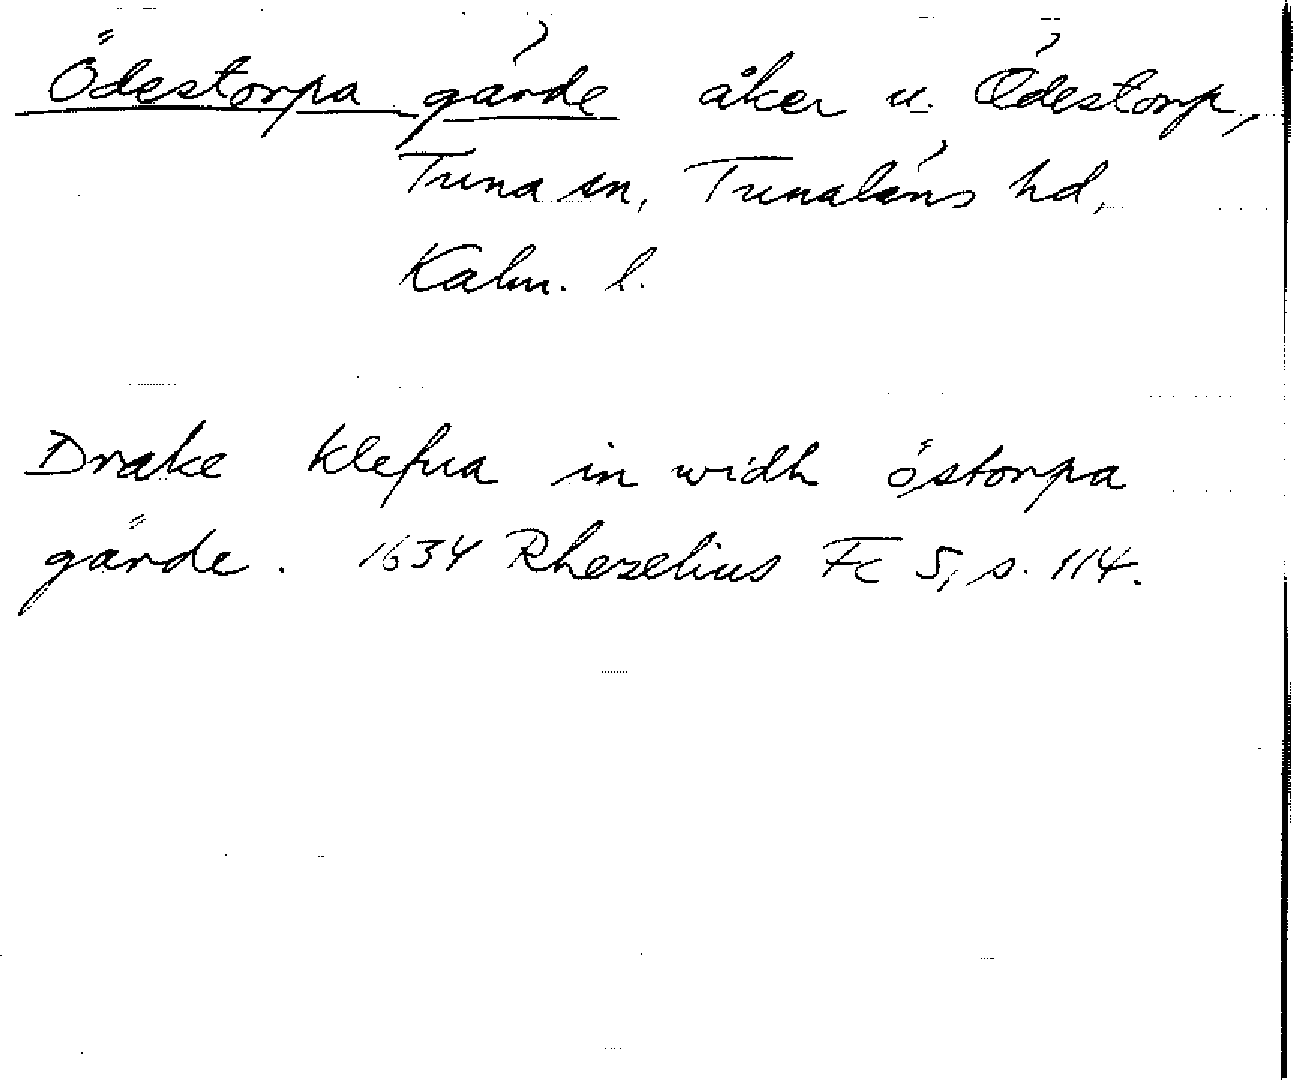 Ödestorpa gärde åker u. Ödestorp,
Tuna sn, Tunaläns hd,
Kalm. l.
Drake klefua in widh östorpa
gärde. 1634 Rhezelius Fc 5, s. 114.